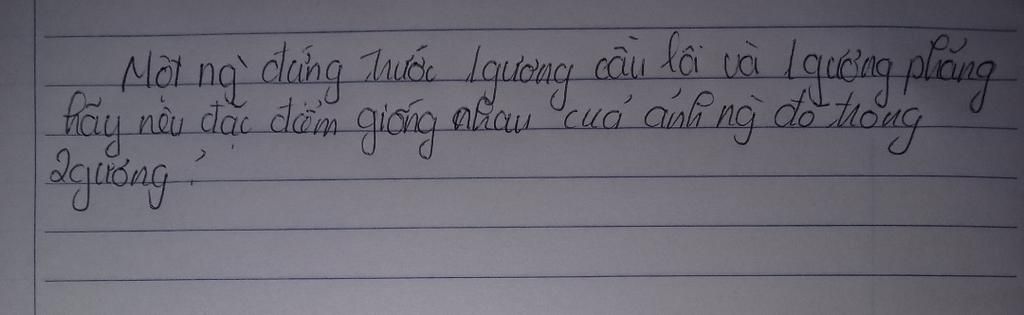 Một ng` đứng trước 1 gương cầu lồi và 1 gương phẳng
hãy nêu đặc điểm giống nhau của ảnh ng` đó trong
2 gương?